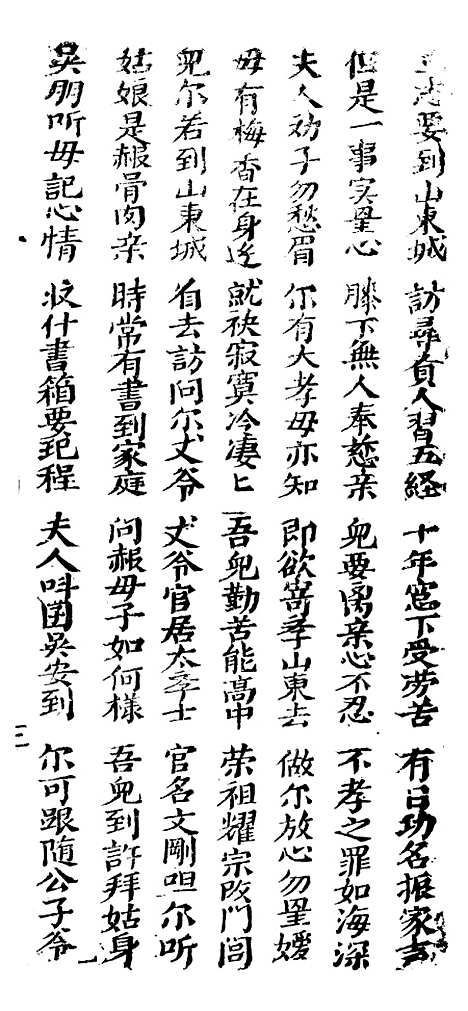 志要到山東城 訪尋貟人習五経 十年窓下受劳苦 有日功名振家声
但是一事实罣心 膝下無人奉慈亲 児要离亲心不忍 不孝之罪如海深
夫人劝子勿愁眉 尔有大孝母亦知 即欲寄斈山東去 做尔放心勿罣嫒
母有梅香在身边 就祑寂寞冷凄匕 吾児勤苦能高中 荣祖耀宗改門闾
児尔若到山東城 省去訪问尔丈爷 丈爷官居太斈士 官名文剛呾尔听
姑娘是赧骨肉亲 時常有書到家庭 问赧母子如何樣 吾児到許拜姑身
吳朋听母記心情 收什書箱要起程 夫人呌囝吳安到 尔可跟随公子爷